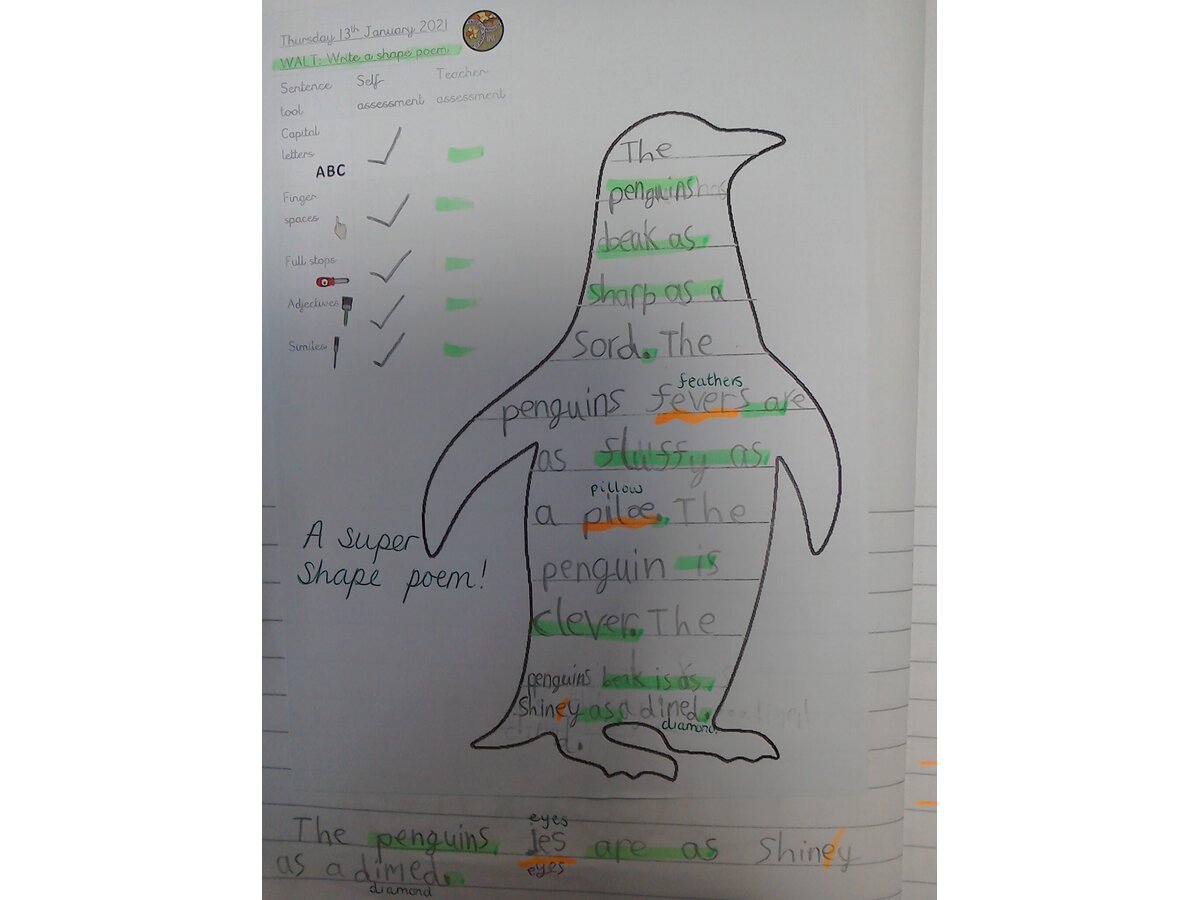 Thursday 13th January 2021
WALT: Write a shape poem
Sentence tool Self assessment Teacher assessment
Capital letters
ABC
Finger spaces
Full stops
Adjectives
Similes
The
penguins has
beak as
sharp as a
Sord. The
feathers
penguins fevers are
as fluffy as
pillow
a piloe. The
penguin is
clever. The
penguins beak is as
Shiney as a dimed.
diamond
A super
shape poem!
eyes
The penguins Ies are as Shiney
eyes
as a dimed.
diamond